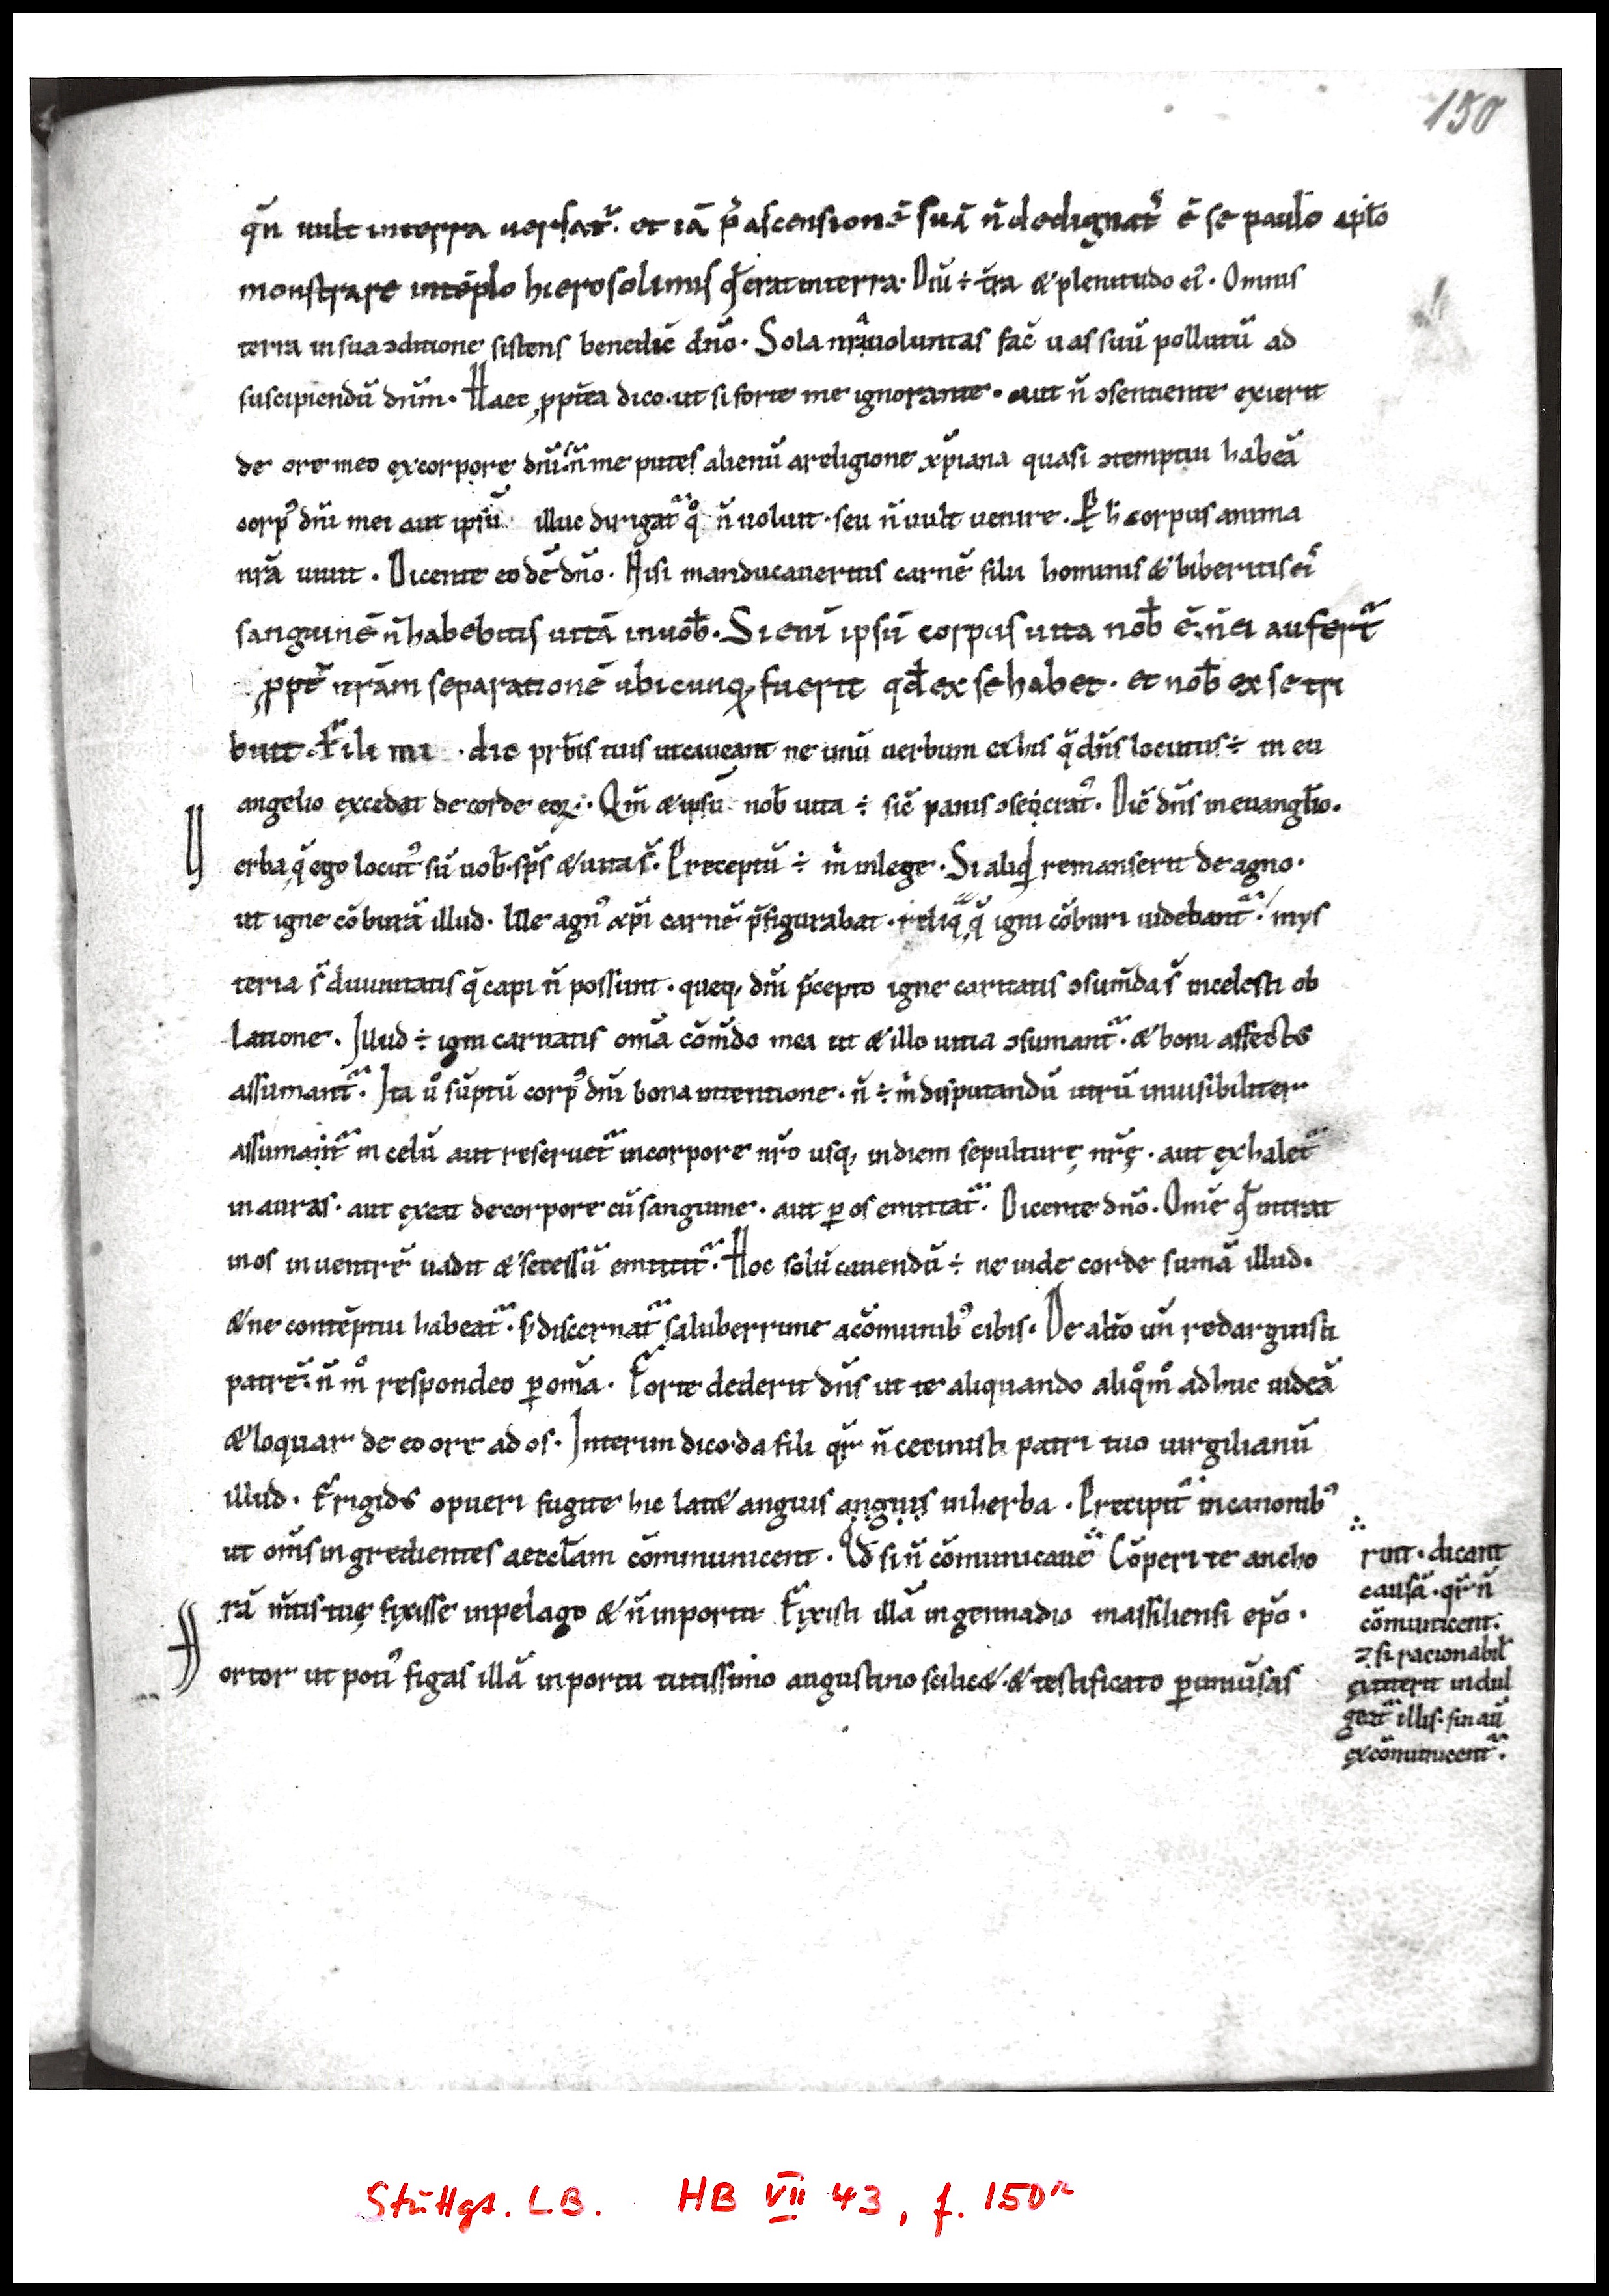 150
qn̄ uult in terra uersat᷑. et iā p̄ ascensionē suā n̄ dedignat᷑ ē se paulo apl̄o
monstrare in tēplo hierosolimis qd̄ erat in terra. Dn̄i ÷ t̄ra & plenitudo ei᷒. Omnis
terra in sua ↄditione sistens benedic̄ dn̄o. Sola nr̄a uoluntas fac̄ uas suū pollutū ad
suscipiendū dn̄m. Haec ꝓpt̄ea dico. ut si forte me ignorante. aut n̄ ↄsentiente exierit
de ore meo ex corpore dn̄i. n̄ me putes alienū a religione xp̄iana quasi ↄtemptui habeā
corp᷒ dn̄i mei aut ipsū illuc dirigat᷑ qͦ n̄ uoluit. seu n̄ uult uenire. P h̄ corpus anima
nr̄a uiuit. Dicente eodē dn̄o. Nisi manducaueritis carnē filii hominis & biberitis ei᷒
sanguinē n̄ habebitis uitā in uob̄. Si eni ipsū corpus uita nob̄ ē. n̄ ei aufert᷑
ꝓpt̄ nr̄am separationē ubicunq; fuerit qd̄ ex se habet. et nob̄ ex se tri
buit. Fili mi. dic prb̄is tuis ut caueant ne unū uerbum ex his q̄ dn̄s locutus ÷ in eu
angelio excedat de corde eoꝝ. Qm̄ & ipsū nob̄ uita ÷ sic̄ panis ↄsecrat᷒. Dic̄ dn̄s in euangl̄io.
Verba q̄ ego locut᷒ sū uob̄. sp̄s & uita s̄. Preceptū ÷ m̄ in lege. Si aliqd̄ remanserit de agno.
ut igne cōburā illud. Ille agn᷒ xp̄i carnē p̄figurabat. reliq̄ q̄ igni cōburi uidebant᷑. mys
teria s̄ diuinitatis q̄ capi n̄ possunt. queq; dn̄i p̄cepto igne caritatis ↄsum̄da s̄ in celesti ob
latione. Illud ÷ igni caritatis om̄a com̄do mea ut & illo uitia ↄsumant᷑. & boni affect᷒
assumant᷑. Ita u᷒ sūptū corp᷒ dn̄i bona intentione. n̄ ÷ m̄ disputandū utrū inuisibiliter
assumat᷑ in celū aut reseruet᷑ in corpore nr̄o usq; in diem sepulturę nr̄ę. aut exhalet᷑
in auras. aut exeat de corpore cū sanguine. aut ꝑ os emittat᷑. Dicente dn̄o. Om̄e qd̄ intrat
in os in uentrē uadit & secessū emittit᷑. Hoc solū cauendū ÷ ne iude corde sumā illud.
& ne contēptui habeat᷑. s; discernat᷑ saluberrime a cōmunib᷒ cibis. De alt̄o un̄ redarguisti
patrē. n̄ m̊ respondeo ꝑ om̄a. Forte dederit dn̄s ut te aliquando aliqͦm̊ adhuc uideā
& loquar de eo ore ad os. Interim dico. da fili qr̄ n̄ cecinisti patri tuo uirgilianū
illud. Frigid᷒ o pueri fugite hic lat& anguis anguis in herba. Precipit᷑ in canonib᷒
ut om̄s ingredientes aeccl̄am cōmunicent. Qd̄ si n̄ cōmunicaue Cōperi te ancho
rā m̄tis tuę fixisse in pelago & n̄ in portu. Fixisti illā in gennadio massiliensi ep̄o.
Hortor ut poti᷒ figas illā in portu tutissimo augustino scilic&. & testificato ꝑ uniūsas
rint. dicant
causā. qr̄ n̄
cōmunicent.
⁊ si racionabil̄
extiterit indul
geat᷑ illis. sin aū
excōmunicent᷑.
Stuttgt. L B. HB VII 43, f. 150r